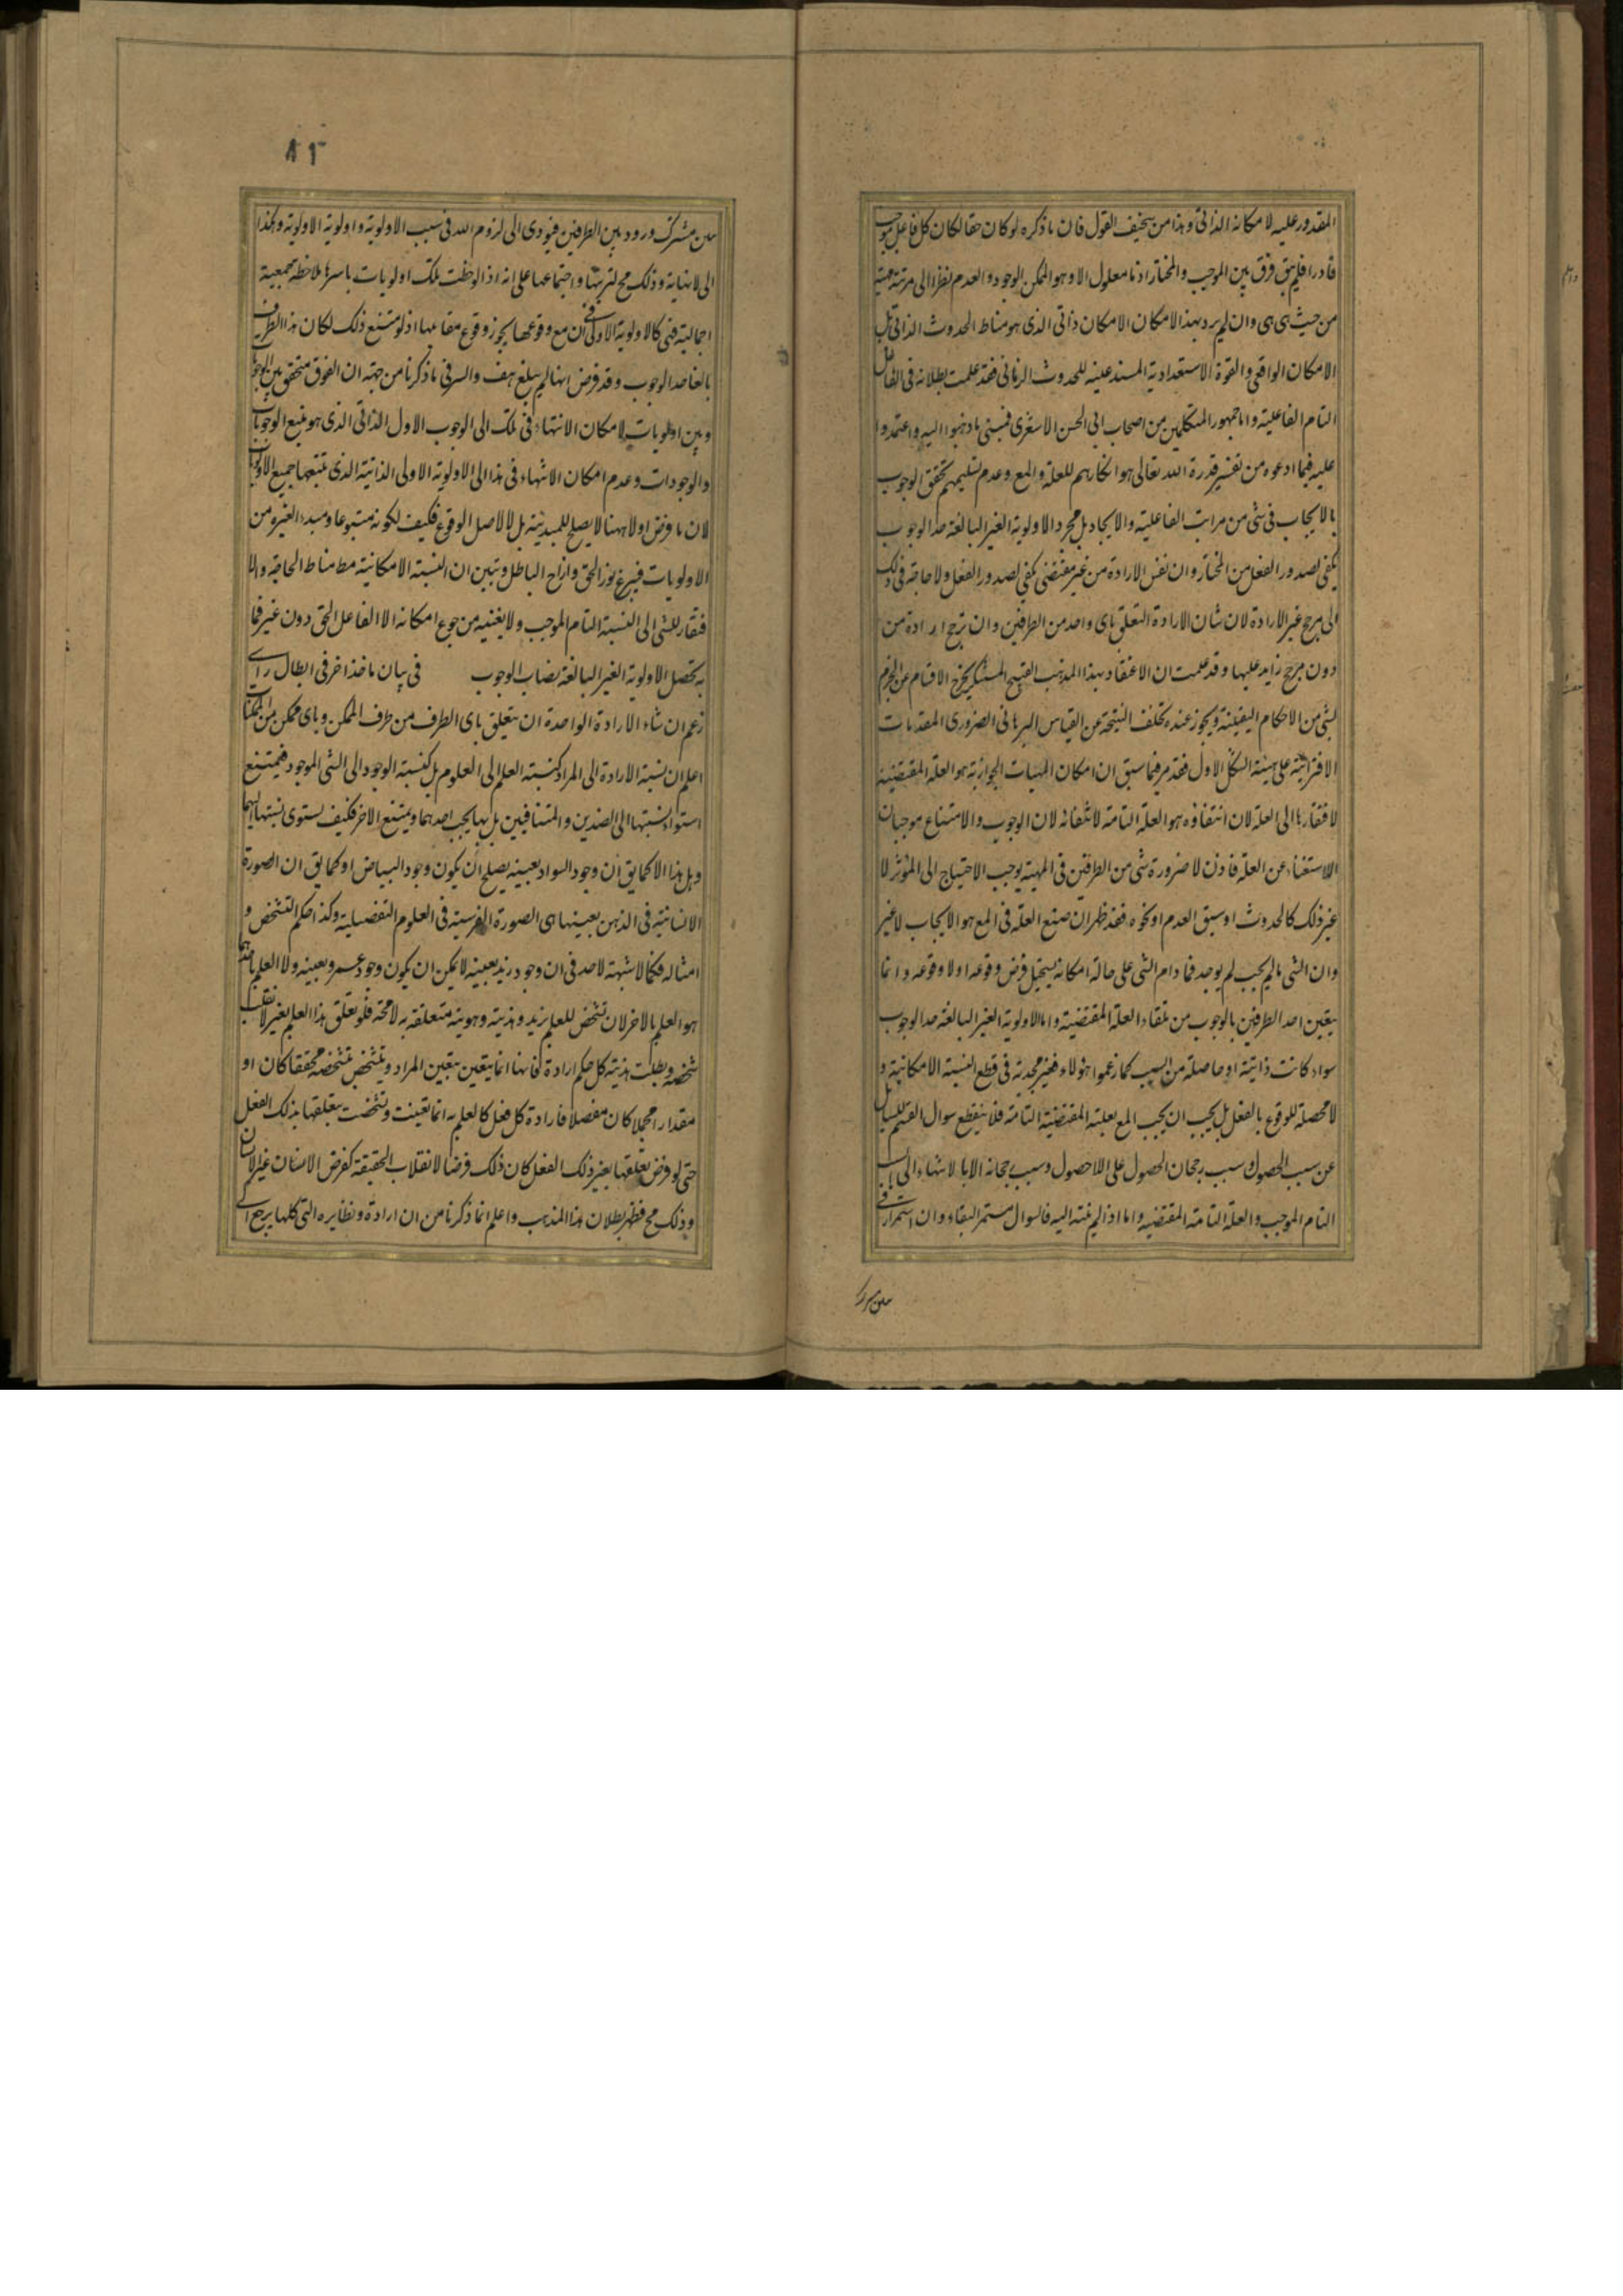 المقدور عليه لامكانه الذاتى وهذا من سخيف القول فان ما ذكره لو كان حقا لكان كل فاعل موجب
قادرا فلم يبق فرق بين الموجب والمختار اذ ما معلول الا وهو الممكن الوجود والعدم نظرا الى مرتبة مهيته
من حيث هى هى وان لم يرد بهذا الامكان الامكان الذاتى الذى هو مناط الحدوث الذاتى بل
الامكان الواقعى والقوة الاستعدادية المستدعية للحدوث الزمانى فقد علمت بطلانه فى الفاعل
التام الفاعلية واما جمهور المتكلمين من اصحاب ابى الحسن الاشعرى فمبنى ما ذهبوا اليه واعتمدوا
عليه فيما ادعوه من تفسير قدرة الله تعالى هو انكارهم للعلة والمع وعدم تسليمهم تحقق الوجوب
بالايجاب فى شى من مراتب الفاعلية والايجاد بل مجرد الاولوية الغير البالغة حد الوجوب
يكفى لصدور الفعل من المختار وان نفس الارادة من غير مقتضى يكفى لصدور الفعل ولا حاجة فى ذلك
الى مرجح غير الارادة لان شان الارادة التعلق باى واحد من الطرفين وان ترجح ارادة من
دون مرجح زايد عليها وقد علمت ان الاعتقاد بهذا المذهب القبيح المستنكر يخرج الانسان عن الجزم
لشى من الاحكام اليقينية ويجوز عنده تخلف النتيجة عن القياس البرهانى الضرورى المقدمات
الاقترانية على هيئة الشكل الاول فقد مر فيما سبق ان امكان المهيات الجوازية هو العلة المقتضية
لافتقارها الى العلة لان انتفاؤه هو العلة التامة لانتفائه لان الوجوب والامتناع موجبات
الاستغناء عن العلة فاذن لا ضرورة شى من الطرفين فى المهية يوجب الاحتياج الى المؤثر لا
غير ذلك كالحدوث او سبق العدم او نحوه فقد ظهر ان صنع العلة فى المع هو الايجاب لا غير
وان الشى ما لم يجب لم يوجد فما دام الشى على حالة امكانه يستحيل فرض وقوعه او لا وقوعه وانما
يتعين احد الطرفين بالوجوب من تلقاء العلة المقتضية واما الاولوية الغير البالغة حد الوجوب
سواء كانت ذاتية او حاصلة من السبب كما زعموا هؤلاء فغير مجدية فى قطع النسبة الامكانية و
لا محصلة للوقوع بالفعل بل يجب ان يجب المع بعلته المقتضية التامة فلا ينقطع سوال القسم للسايل
عن سبب الحصول وسبب رجحان الحصول على اللاحصول وسبب رجحانه الا بالانتهاء الى السبب
التام الموجب والعلة التامة المقتضية واما اذا لم ينته اليه فالسوال مستمر البقاء وان استمرار فى
من مشترك
٨٢
من مشترك ورود بين الطرفين فيودى الى لزوم التس فى سبب الاولوية واولوية الاولوية وهكذا
الى لا نهاية وذلك مح لترتبها واجتماعها على انه اذا لوحظت تلك اولويات باسرها ملاحظة جمعية
اجمالية فهى كالاولوية الاولى فى ان مع وقوعها يجوز وقوع مقابلها اذ لو متنع ذلك لكان هذا الطرف
بالغا حد الوجوب وقد فرض انها لم يبلغ هف والسر فى ما ذكرنا من جهة ان الفرق متحقق بين الوجوبات
وبين اولويات لامكان الانتهاء فى تلك الى الوجوب الاول الذاتى الذى هو منبع الوجوبات
والوجودات وعدم امكان الانتهاء فى هذا الى الاولوية الاولى الذاتية الذى يتبعها جميع الاولويات
لان ما فرض اولا ههنا لا يصلح للمبدئية بل لاصل الوقوع فكيف لكونه متبوعا ومبدءا لغيره من
الاولويات فبزغ نور الحق وازاح الباطل وتبين ان النسبة الامكانية مط مناط الحاجة والا
فتقار للشى الى النسبة التام الموجب ولا يغنيه من جوع امكانه الا الفاعل الحق دون غير فما
به تحصل الاولوية الغير البالغة نصاب الوجوب فى بيان ماخذ اخر فى ابطال راى
زعم ان شاء الارادة الواحدة ان يتعلق باى الطرف من طرف الممكن وباى ممكن من الممكنات
اعلم ان نسبة الارادة الى المراد كنسبة العلم الى العلوم بل كنسبة الوجود الى الشى الموجود فيمتنع
استواء نسبتها الى الضدين والمتنافيين بل بها يجب احدهما ويمتنع الاخر فكيف يستوى نسبتها اليهما
وهل هذا الا كما يق ان وجود السواد بعينه يصلح ان يكون وجود البياض او كما يق ان الصورة
الانسانية فى الذهن بعينها هى الصورة الفرسية فى العلوم التفضيلية وكذا حكم التشخص و
امثاله فكما لا شبهة لاحد فى ان وجود زيد بعينه لا يمكن ان يكون وجود عمرو بعينه ولا العلم باحدهما
هو العلم بالاخر لان تشخص للعلم بزيد وهذيته وهويته متعلقه به لا محة فلو تعلق هذا العلم بغيره لانقلب
شخصه وبطلت هذيته كل حكم ارادة فانها انما يتعين بتعين المراد ويتشخص بتشخصه محققا كان او
مقدارا مجملا كان مفصلا فارادة كل فعل كالعلم به انما تعينت وتشخصت بتعلقها بذلك الفعل
حتى لو فرض تعلقها بغير ذلك الفعل كان ذلك فرضا لانقلاب الحقيقة كفرض الانسان غير الانسان
وذلك مح فظهر بطلان هذا المذهب واعلم انما ذكرنا من ان ارادة ونظايره التى كلها يرجع الى